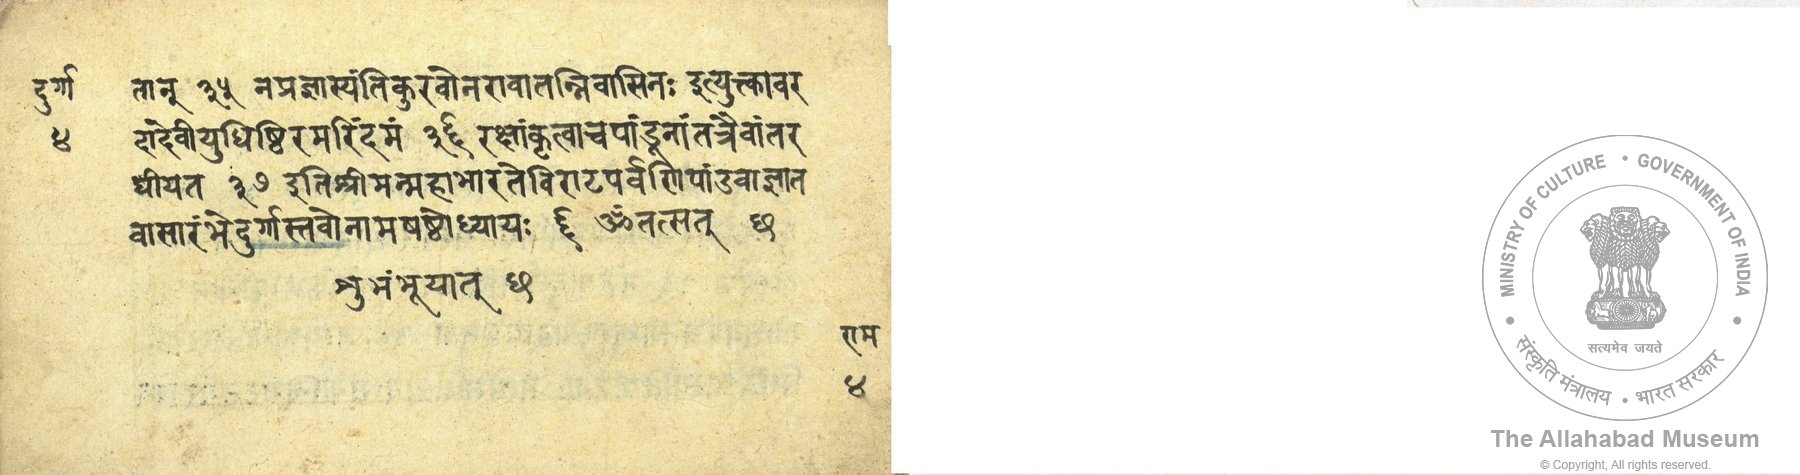 दुर्गा
४
तान् ३५ नप्रज्ञास्यंतिकुरवोनरावातन्निवासिनः इत्युक्त्कावर
दांदेवीयुधिष्ठिरमरिंदमं ३६ रक्षांकृत्वाचपांडूनांतत्रैवांतर
धीयत ३७ इतिश्रीमन्महाभारतेविराटपर्वणिपांडवाज्ञात
वासारंभेदुर्गास्तवोनामषष्ठोध्यायः ६ ॐतत्सत् छ
शुभंभूयात् छ
राम
४
MINISTRY OF CULTURE • GOVERNMENT OF INDIA
सत्यमेव जयते
• संस्कृति मंत्रालय • भारत सरकार •
The Allahabad Museum
© Copyright, All rights reserved.